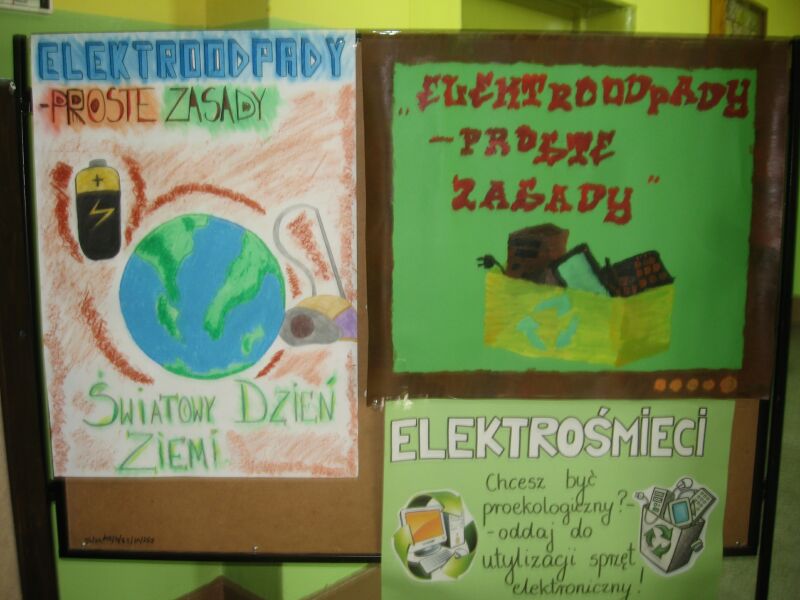 ELEKTROODPADY
-PROSTE ZASADY
ŚWIATOWY DZIEŃ
ZIEMI
„ELEKTROODPADY
-PROSTE
ZASADY"
ELEKTROŚMIECI
Chcesz być
proekologiczny?-
-oddaj do
utylizacji sprzęt
elektroniczny!